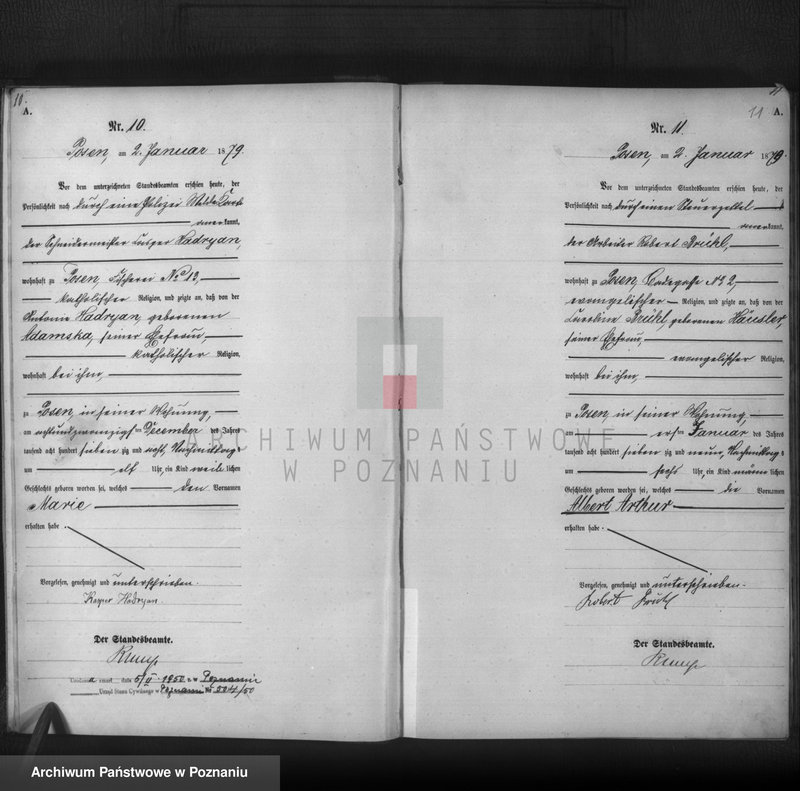 10.
A.
Nr. 10.
Posen, am 2. Januar 1879.
Vor dem unterzeichneten Standesbeamten erschien heute, der
Persönlichkeit nach durch eine Polizei
anerkannt,
der Schneidermeister Hadryan,
wohnhaft zu Posen, Fischerei No 13,
katholischer Religion, und zeigte an, daß von der
Antonie Hadryan, geborenen
Adamska, seiner Ehefrau,
katholischer Religion,
wohnhaft bei ihm,
zu Posen, in seiner Wohnung,
am achtundzwanzigsten Dezember des Jahres
tausend acht hundert siebenzig und acht, Nachmittags
um elf Uhr, ein Kind weiblichen
Geschlechts geboren worden sei, welches den Vornamen
Marie
erhalten habe.
Vorgelesen, genehmigt und unterschrieben.
Hadryan.
Der Standesbeamte.
zmarł dnia 5/II 1950 r. w Poznaniu
Urząd Stanu Cywilnego w Poznaniu Nr 524/50
11 A.
Nr. 11.
Posen, am 2. Januar 1879.
Vor dem unterzeichneten Standesbeamten erschien heute, der
Persönlichkeit nach durch einen Steuerzettel
anerkannt,
der Arbeiter Robert Brühl,
wohnhaft zu Posen, No 2,
evangelischer Religion, und zeigte an, daß von der
Brühl geborenen Häusler,
seiner Ehefrau,
evangelischer Religion,
wohnhaft bei ihm,
zu Posen in seiner Wohnung,
am ersten Januar des Jahres
tausend acht hundert siebenzig und neun, Nachmittags
um sechs Uhr, ein Kind männlichen
Geschlechts geboren worden sei, welches die Vornamen
Albert Arthur
erhalten habe.
Vorgelesen, genehmigt und unterschrieben.
Robert Brühl
Der Standesbeamte.
ARCHIWUM PAŃSTWOWE
W POZNANIU
Archiwum Państwowe w Poznaniu